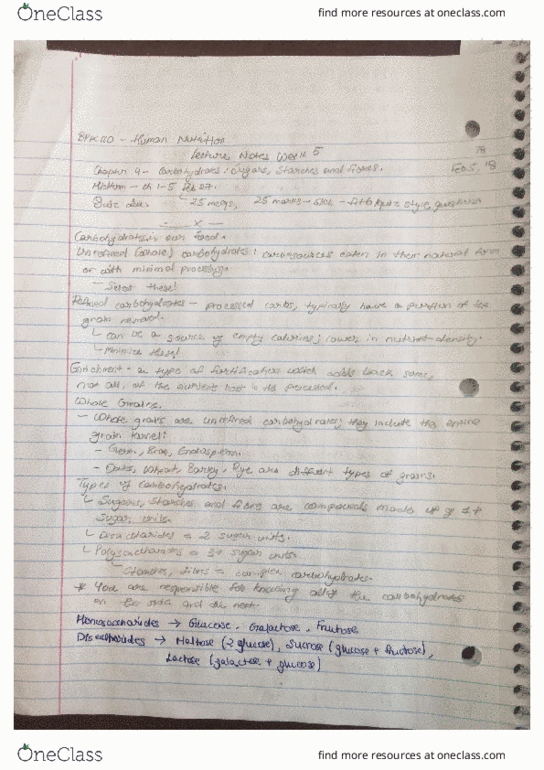 OneClass
find more resources at oneclass.com
BPK 110 - Human Nutrition
Lecture Notes Week 5
Feb 5, 18
Chapter 4 - Carbohydrates: Sugars, Starches and fibres.
Midterm - ch 1-5 Feb 27.
25 mcqs, 25 marks
Carbohydrates in our food.
Unrefined (whole) carbohydrates: carb sources eaten in their natural form
or with minimal processing.
- Select these!
Refined carbohydrates - processed carbs, typically have a portion of the
grain removed.
can be a source of empty calories; lower in nutrient density.
Minimize these!
Enrichment - a type of fortification which adds back some,
not all, of the nutrient lost in the processed.
Whole Grains.
- Whole grains are unrefined carbohydrates; they include the entire
grain kernel:
- Germ, Bran, Endosperm.
- Oats, Wheat, Barley, Rye are different types of grains.
Types of Carbohydrates.
Sugars, Starches and fibres are compounds made up of 1+
sugar units.
Disaccharides = 2 sugar units.
Polysaccharides = 3+ sugar units.
Starches, fibres = complex carbohydrates.
* You are responsible for knowing all of the carbohydrates
on this slide and the next.
Monosaccharides → Glucose, Galactose, Fructose
Disaccharides → Maltose (2 glucose), Sucrose (glucose + fructose),
Lactose (galactose + glucose)
OneClass
find more resources at oneclass.com